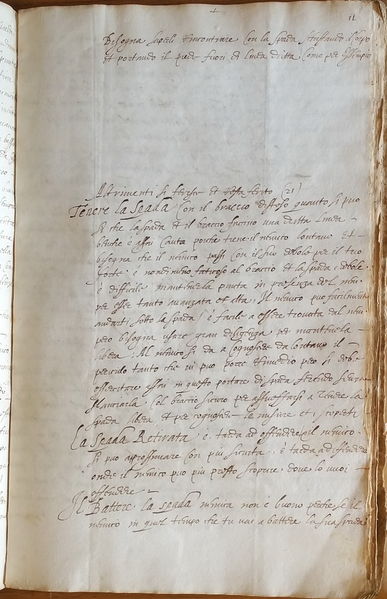 11
Bisogna saperli incontrare con la spada schifando il corpo
et portando il piede fuori di linea dritta come per essempio
Altrimenti si ferisce et resta ferito (21)
Tenere la Spada con il braccio disteso quanto si può
si che la spada et il braccio faccino una dritta linea
benche è assai cauta perche tiene il nimico lontano et
bisogna che il nimico passi con il suo debole per il tuo
forte è nondimeno faticoso al braccio et la spada è debole
è difficile mantenerla punta in presenza del nimico
per esser tanto avanzata et dritta. Il nimico può facilmente
andarti sotto la spada è facile a esser trovata dal nimico
però bisogna usare gran diligenza per mantenerla
libera. Al nimico si da a cognoscere da lontano il
pericolo tanto che vi può porre rimedio però si debbe
essercitare assai in questo portare di spada stendendo
il braccio per assuefarsi a tenere la
spada libera et per cognoscere le misure et i tempi
La Spada Retirata è tarda ad offendere il nimico
si può approssimare con più sicurtà è tarda ad offendere
onde il nimico può più presto scoprire dove lo vuoi
offendere
Il Battere la spada nimica non è buono perche se il
nimico in quel tempo che tu vai a battere la sua spada